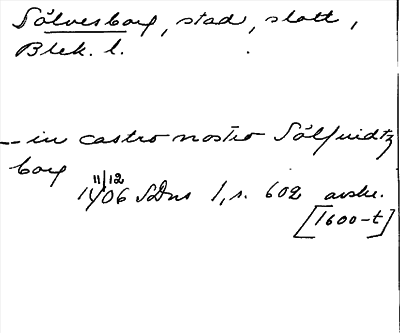 Sölvesborg, stad, slott,
Blek. l.
-- in castro nostro Sölfuidtz
borg
11/12
1406 SDns 1, s. 602 avskr.
[1600-t]